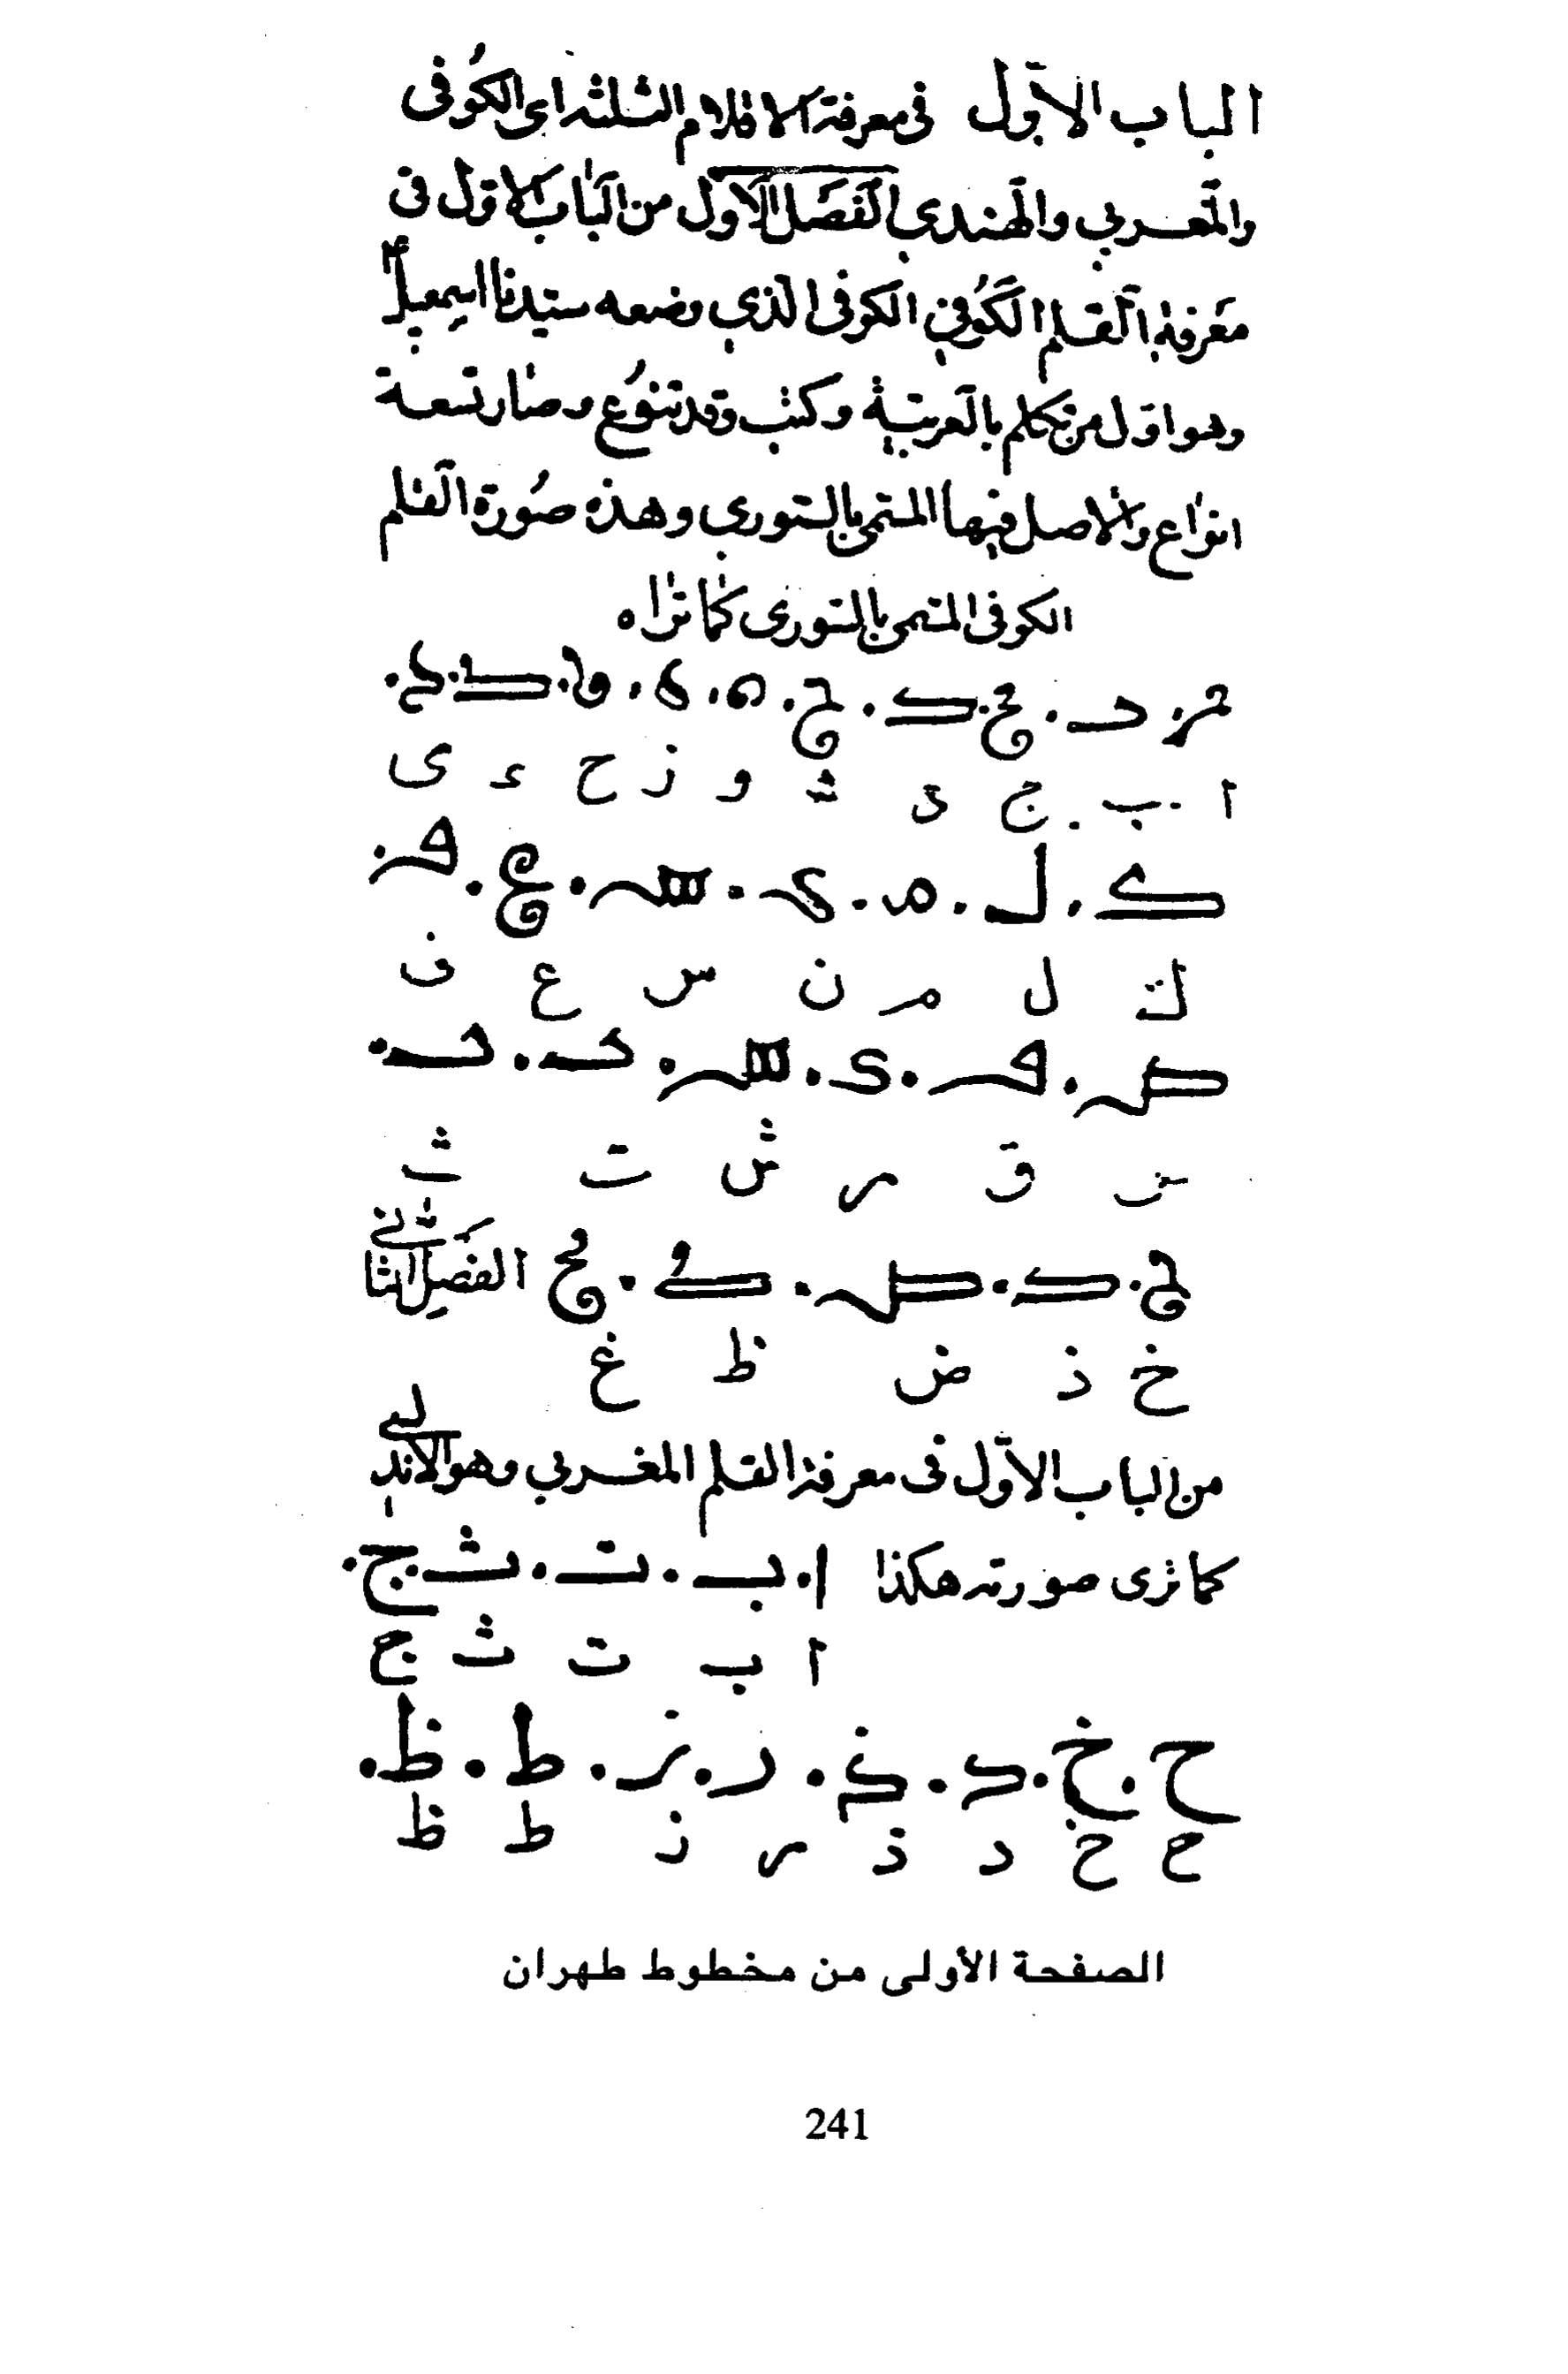 الباب الاوّل في معرفة الاقلام الثلثة اى الكُوفى
والمغربي والهندي الفصل الاول من الباب الاول فى
معرفة القلم الكُوفي الكوفى الذي وضعه سيّدنا اسمعيل
وهو اوّل من تكلم بالعربيّة وكتب وقد تنوّع وصار تسعة
انواع والاصل فيها المسمى بالسّوري وهذه صُورة القلم
الكوفى المسمى بالسورى كما تراه
ا ب ج د ث و ز ح ء ى
ك ل م ن س ع ف
ص ق ر ش ت ث
الفصل الثاني
خ ذ ض ظ غ
من الباب الاوّل فى معرفة القلم المغربي وهو الاندلسي
كما ترى صورته هكذا ا. ب. ت. ث. ج.
ا ب ت ث ج
ح خ. د. ذ. ر. ز. ط. ظ.
ح خ د ذ ر ز ط ظ
الصفحة الأولى من مخطوط طهران
241